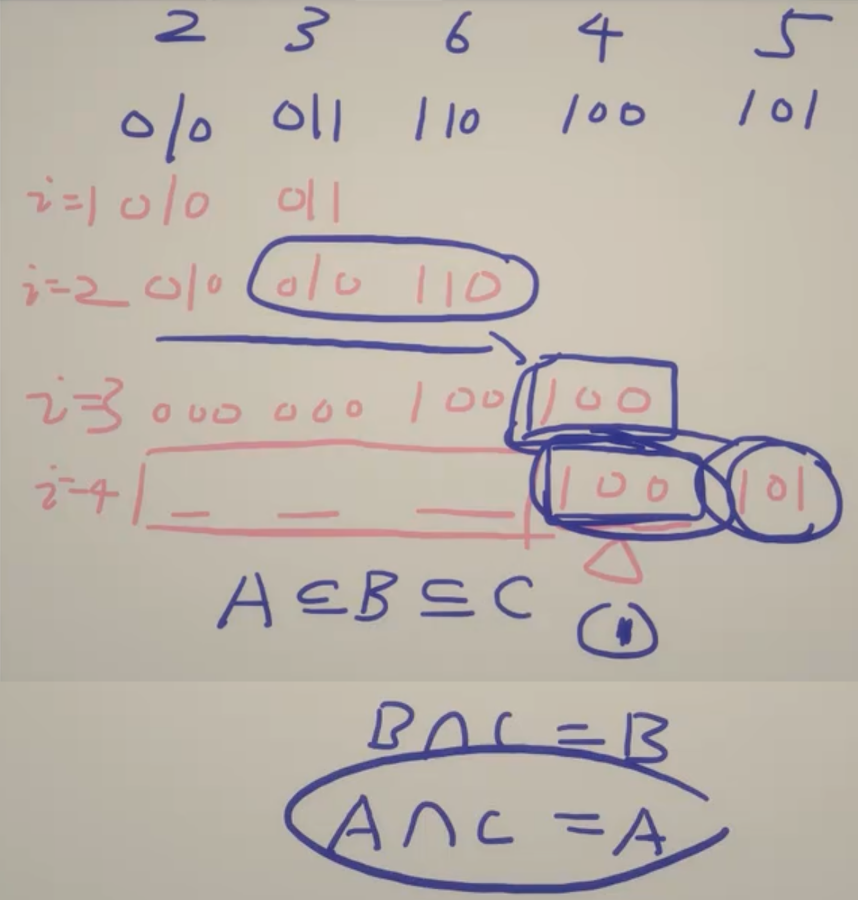 2 3 6 4 5
010 011 110 100 101
i=1 010 011
i=2 010 010 110
i=3 000 000 100 100
i=4 _ _ _ 100 101
A⊆B⊆C
B∩C=B
A∩C=A